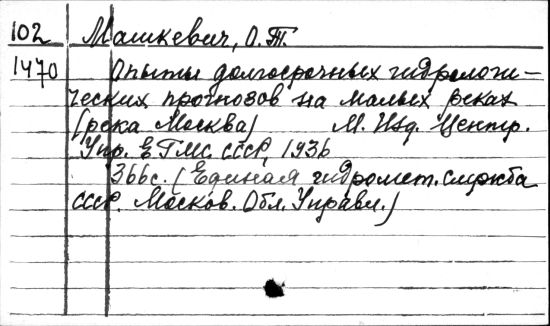 102 Машкевич, О.Т.
1470 Опыты долгосрочных гидрологи-
ческих прогнозов на малых реках
(река Москва) М. Изд. Центр.
Упр. ЕГМС СССР, 1936
366с. (Единая гидромет. служба
СССР. Москов. Обл. Управл.)